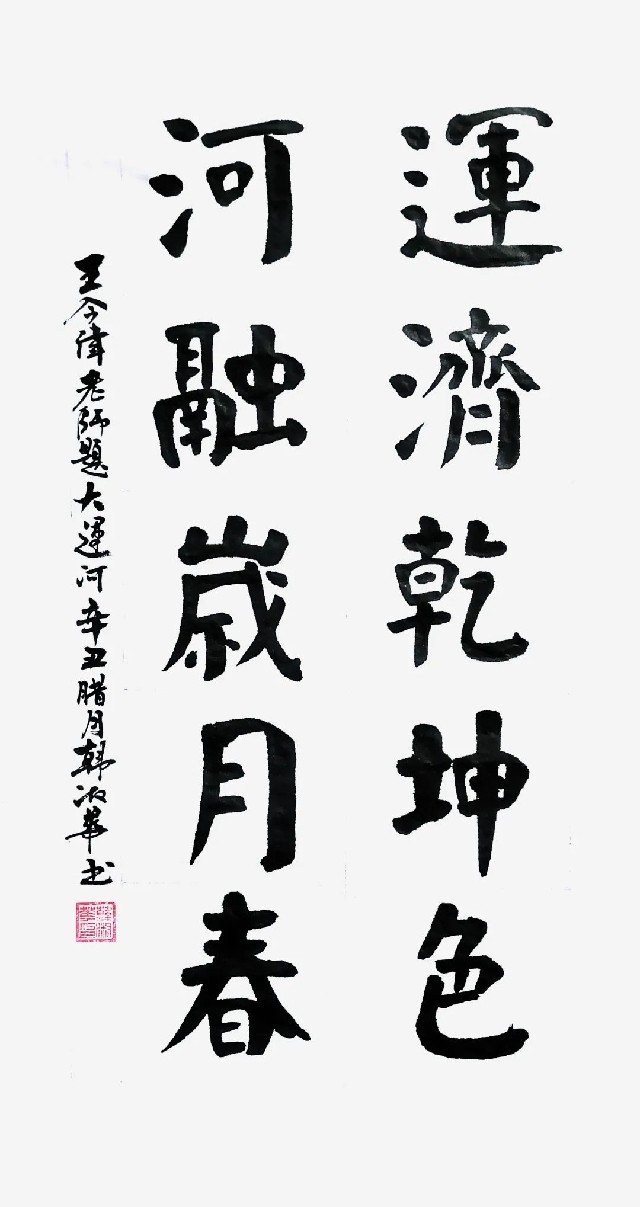 運濟乾坤色
河融歲月春
王今偉老師題大運河辛丑腊月韩淑華书